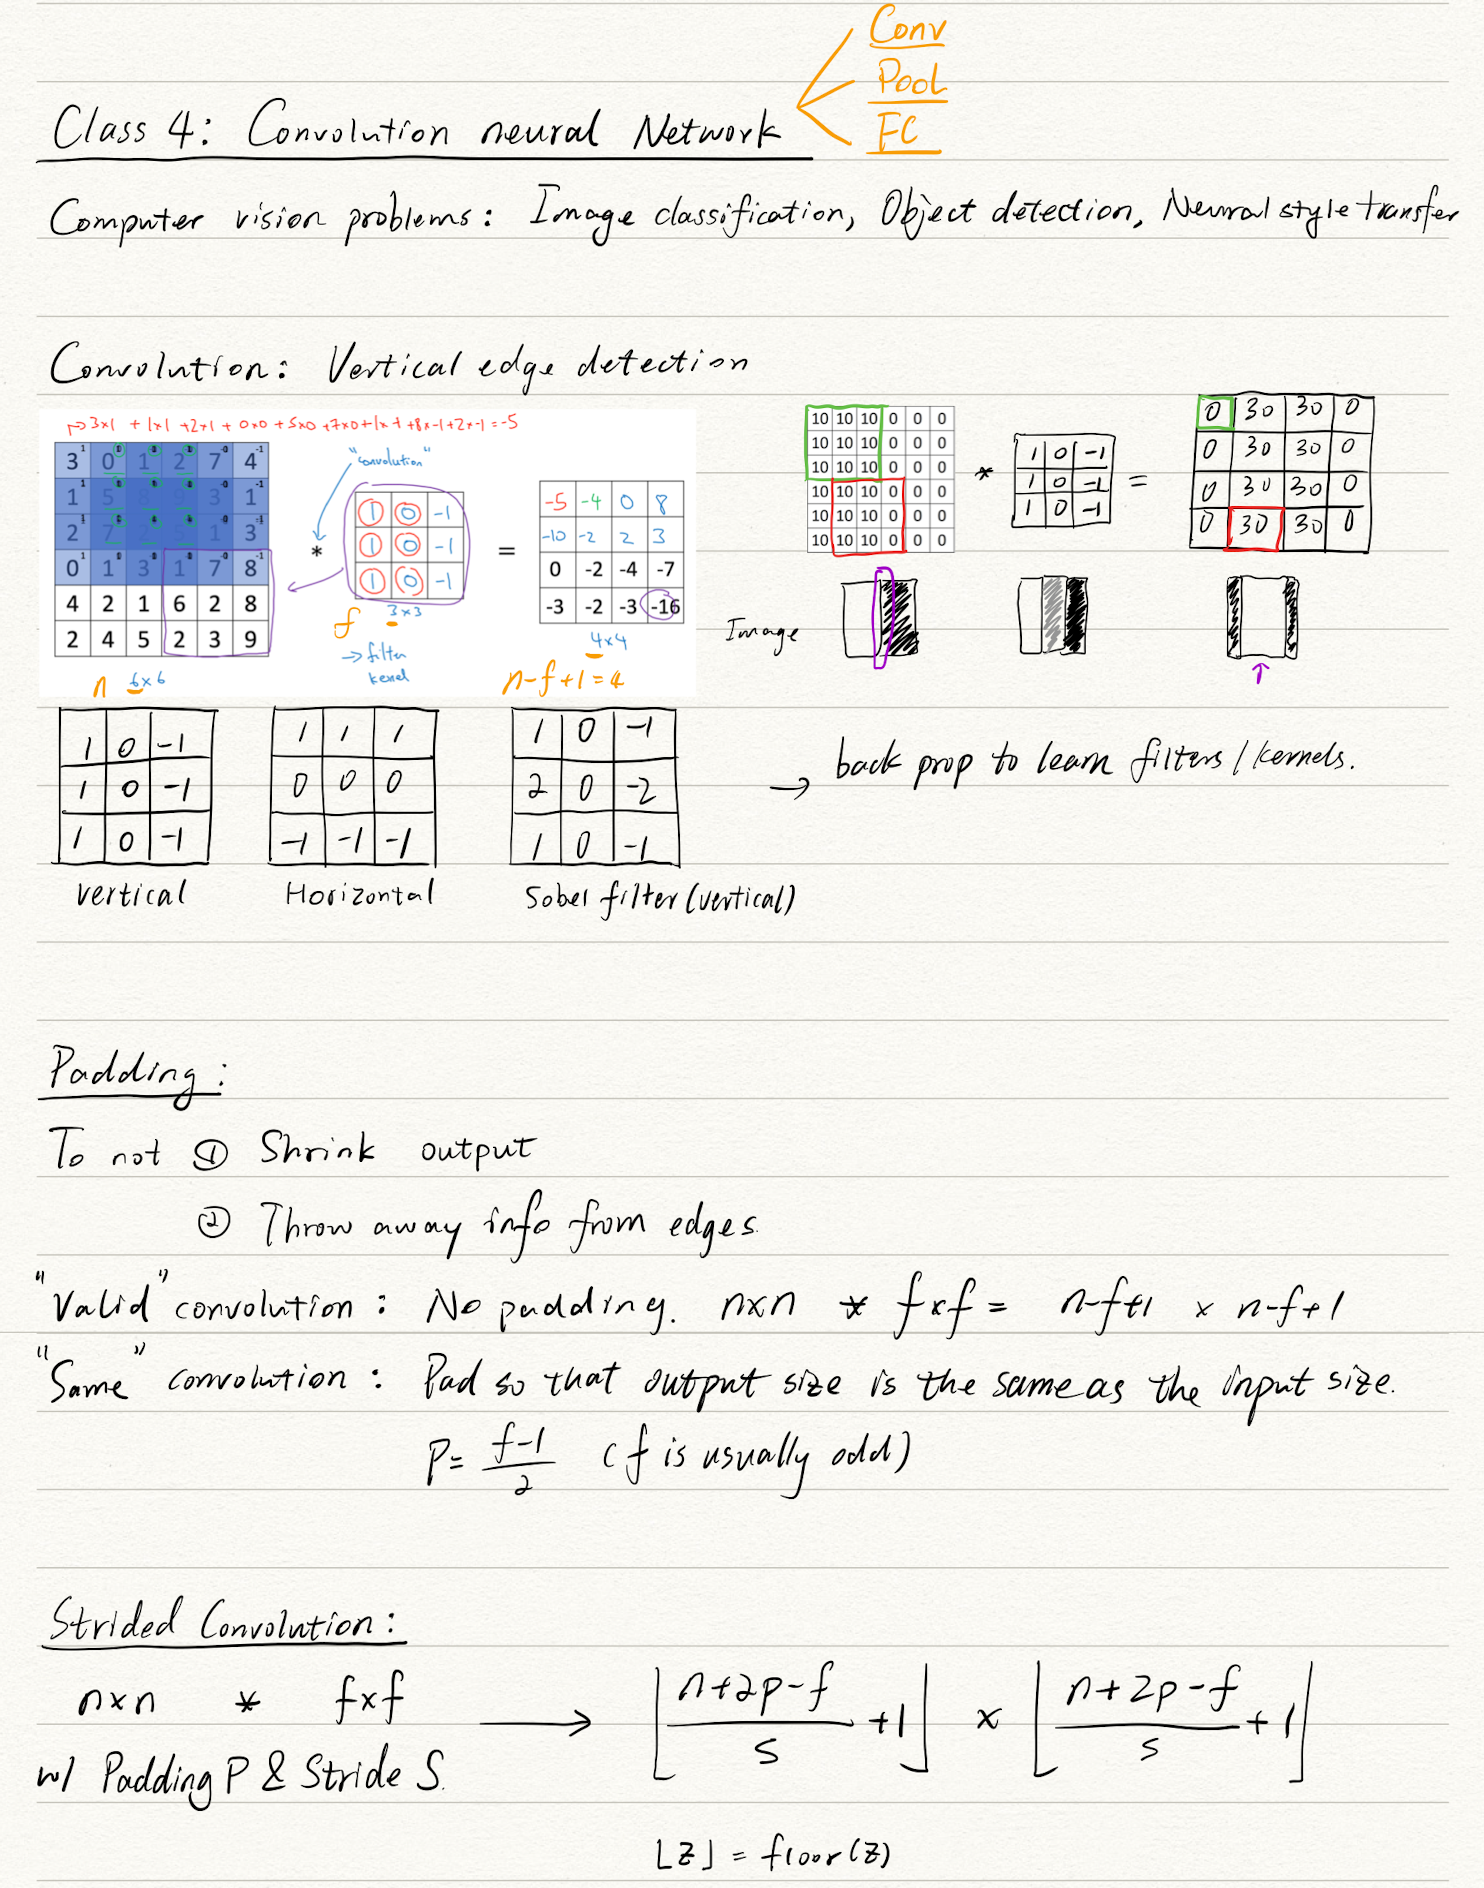 Conv
Pool
FC
Class 4: Convolution neural Network
Computer vision problems: Image classification, Object detection, Neural style transfer
Convolution: Vertical edge detection
3x1 + 1x1 +2x1 + 0x0 + 5x0 +7x0+1x + +8x-1+2x-1=-5
3 0 1 2 7 4
1 5 8 9 3 1
2 7 2 5 1 3
0 1 3 1 7 8
4 2 1 6 2 8
2 4 5 2 3 9
n 6x6
"convolution"
*
1 0 -1
1 0 -1
1 0 -1
f 3x3
→ filter
kernel
=
-5 -4 0 8
-10 -2 2 3
0 -2 -4 -7
-3 -2 -3 -16
4x4
n-f+1=4
10 10 10 0 0 0
10 10 10 0 0 0
10 10 10 0 0 0
10 10 10 0 0 0
10 10 10 0 0 0
10 10 10 0 0 0
*
1 0 -1
1 0 -1
1 0 -1
=
0 30 30 0
0 30 30 0
0 30 30 0
0 30 30 0
Image
↑
1 0 -1
1 0 -1
1 0 -1
vertical
1 1 1
0 0 0
-1 -1 -1
Horizontal
1 0 -1
2 0 -2
1 0 -1
Sobel filter (vertical)
→ back prop to learn filters / kernels.
Padding:
To not ① Shrink output
② Throw away info from edges.
"Valid" convolution: No padding. nxn * fxf = n-f+1 x n-f+1
"Same" convolution: Pad so that output size is the same as the input size.
P= f-1/2 (f is usually odd)
Strided Convolution:
nxn * fxf → ⌊n+2p-f/s +1⌋ x ⌊n+2p-f/s +1⌋
w/ Padding P & Stride S.
⌊z⌋ = floor(z)